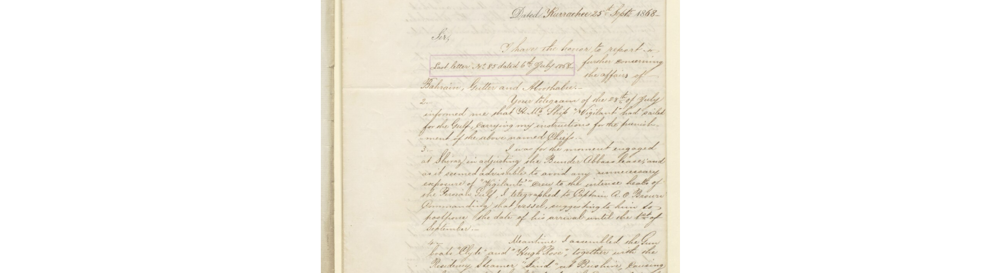 Dated Kurrachee 25th Septr 1868.
Sir,
I have the honor to report
Last letter No. 95 dated 4th July 1868. further concerning
the affairs of
Bahrain, Gutter and Aboothabee.
2. Your telegram of the 18th of July
informed me that H.M's Ship "Vigilant" had sailed
for the Gulf, carrying my instructions for the punish-
ment of the above named Chiefs.
3. I was for the moment engaged
at Shiraz in adjusting the Bunder Abbass lease; and
as it seemed advisable to avoid any unnecessary
exposure of "Vigilant's" crew to the intense heats of
the Persian Gulf, I telegraphed to Captain R. A. Brown
Commanding that vessel, suggesting to him to
postpone the date of his arrival until the 1st of
September.
4. Meantime I assembled the Gun
boats "Clyde" and "Hugh Rose", together with the
Residency Steamer "Sind" at Bushire, causing